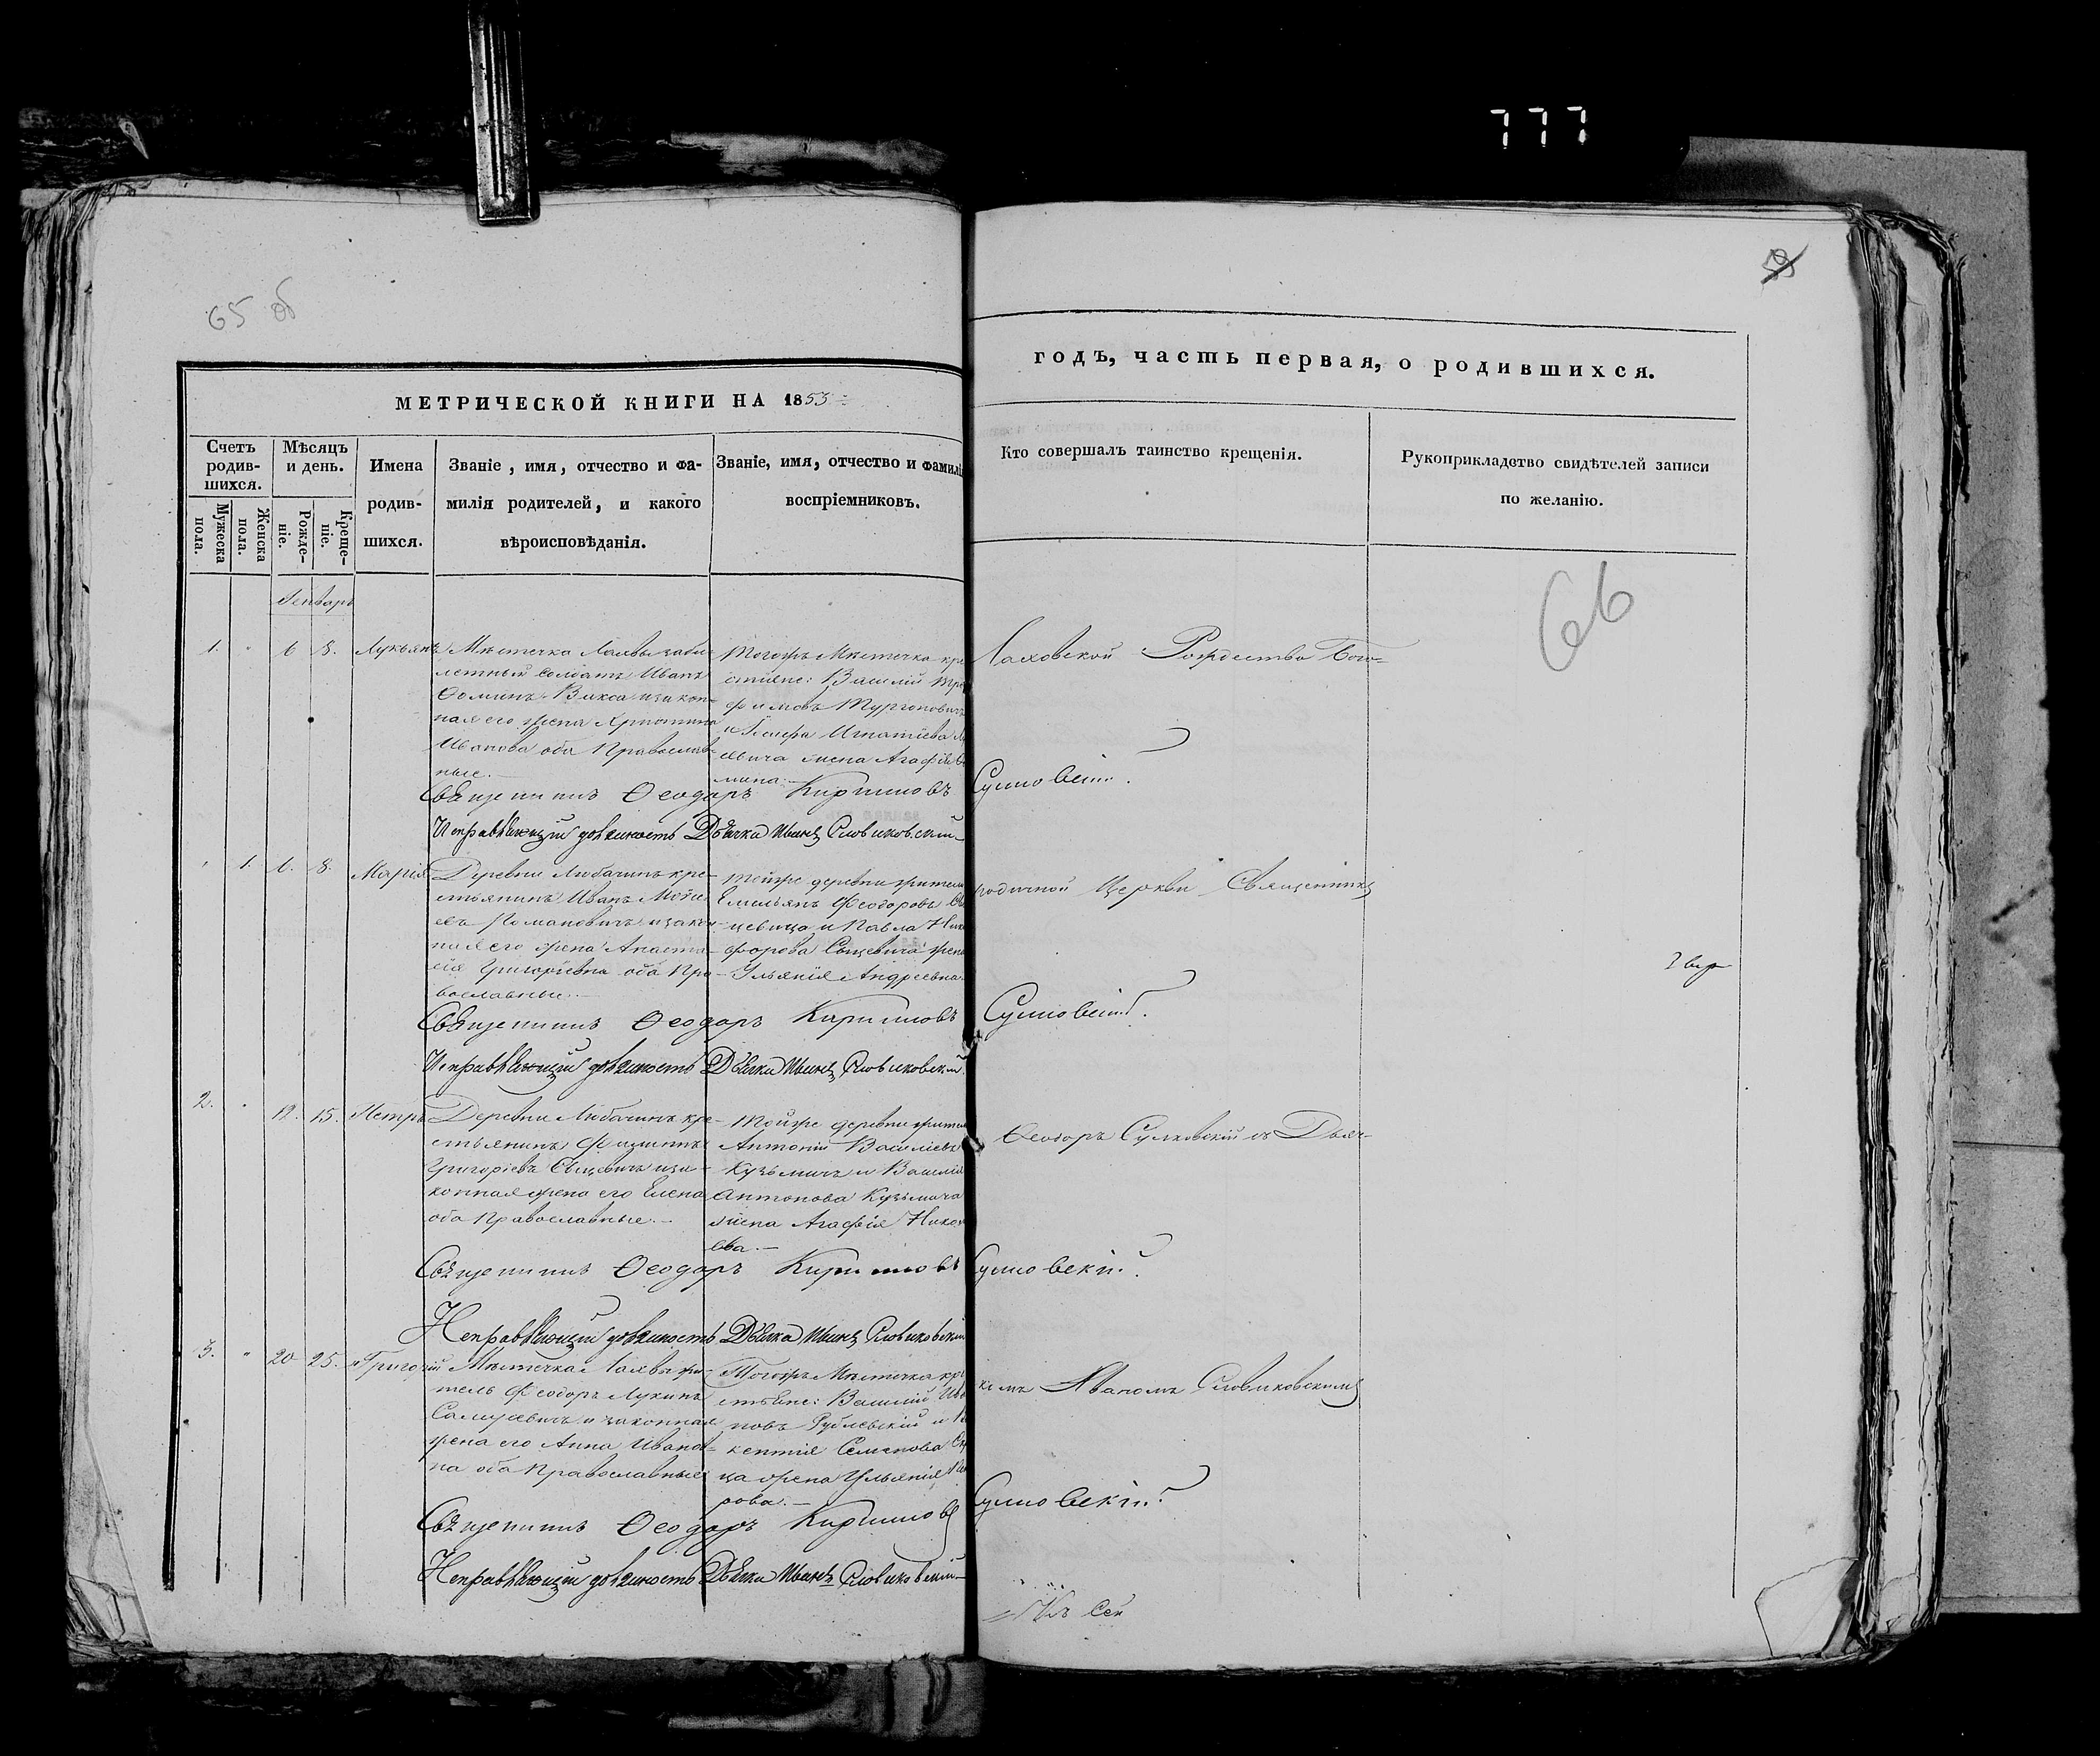 777
65 об
МЕТРИЧЕСКОЙ КНИГИ НА 1853
годъ, часть первая, о родившихся.
Счетъ родив-шихся.
Мужеска пола.
Женска пола.
Мѣсяцъ и день.
Рожде-ніе.
Креще-ніе.
Имена родив-шихся.
Званіе, имя, отчество и фа-
милія родителей, и какого
вѣроисповѣданія.
Званіе, имя, отчество и фамилія
воспріемниковъ.
Кто совершалъ таинство крещенія.
Рукоприкладство свидѣтелей записи
по желанію.
66
Генварь
1. " 6 8. Лукьянъ
Мѣстечка Лахвы забы-
летный солдатъ Иванъ
Ѳоминъ Вакса и закон-
ная его жена Христина
Иванова оба Православ-
ные.
Тогожъ Мѣстечка кре
стьяне: Василій Тро
фимовъ Турконовичъ
и Іосифа Игнатіева
евича жена Агафія
мина.
Лаховской Рождество Бого-
Священникъ Ѳеодоръ Кирилловъ Сулковскій.
Исправляющій должность Дьячка Иванъ Словиковскій
" 1. 6. 8. Марія
Деревни Любачинъ кре-
стьянинъ Иванъ Мойсе
евъ Романовичъ и закон-
ная его жена Анаста-
сія Григоріевна оба Пра-
вославные.
Тойже деревни жители
Емельянъ Феодоровъ
цевича и Павла Ники
форова Сыцевича жена
Ульянія Андреевна.
родичной Церкви Священникъ
Священникъ Ѳеодоръ Кирилловъ Сулковскій.
Исправляющій должность Дьячка Иванъ Словиковскій.
2. " 12. 15. Петръ
Деревни Любачинъ кре-
стьянинъ
Григоріевъ Сыцевичъ и за-
конная жена его Елена
оба Православные.
Тойже деревни жители
Антоній Василіевъ
Кузьмичъ и Василія
Антонова Кузьмича
жена Агафія Никола
ева.
Ѳеодоръ Сулковскій съ Дьяч-
Священникъ Ѳеодоръ Кирилловъ Сулковскій.
Исправляющій должность Дьячка Иванъ Словиковскій
3. " 20 25. Григорій
Мѣстечка Лахвы жи-
тель Феодоръ Лукинъ
Самусевичъ и законная
жена его Анна Иванов-
на оба Православные
Тогожъ Мѣстечка кре
стьяне: Василій Ива
новъ Рублевскій и
кентія Семенова
ца жена Ульянія
рова.
комъ Иваномъ Словиковскимъ
Священникъ Ѳеодоръ Кирилловъ Сулковскій.
Исправляющій должность Дьячка Иванъ Словиковскій